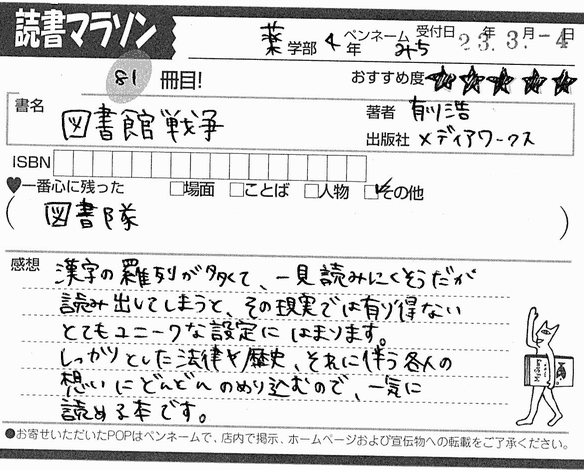 読書マラソン
薬学部4年 ペンネーム みち 受付日 23年3月-4日
81 冊目!
おすすめ度 ★★★★★
書名 図書館戦争
著者 有川浩
出版社 メディアワークス
ISBN
♥一番心に残った □場面 □ことば □人物 ☑その他
( 図書隊 )
感想
漢字の羅列が多くて、一見読みにくそうだが
読み出してしまうと、その現実では有り得ない
とてもユニークな設定にはまります。
しっかりとした法律や歴史、それに伴う各人の
想いにどんどんのめり込むので、一気に
読める本です。
●お寄せいただいたPOPはペンネームで、店内で掲示、ホームページおよび宣伝物への転載をご了承ください。